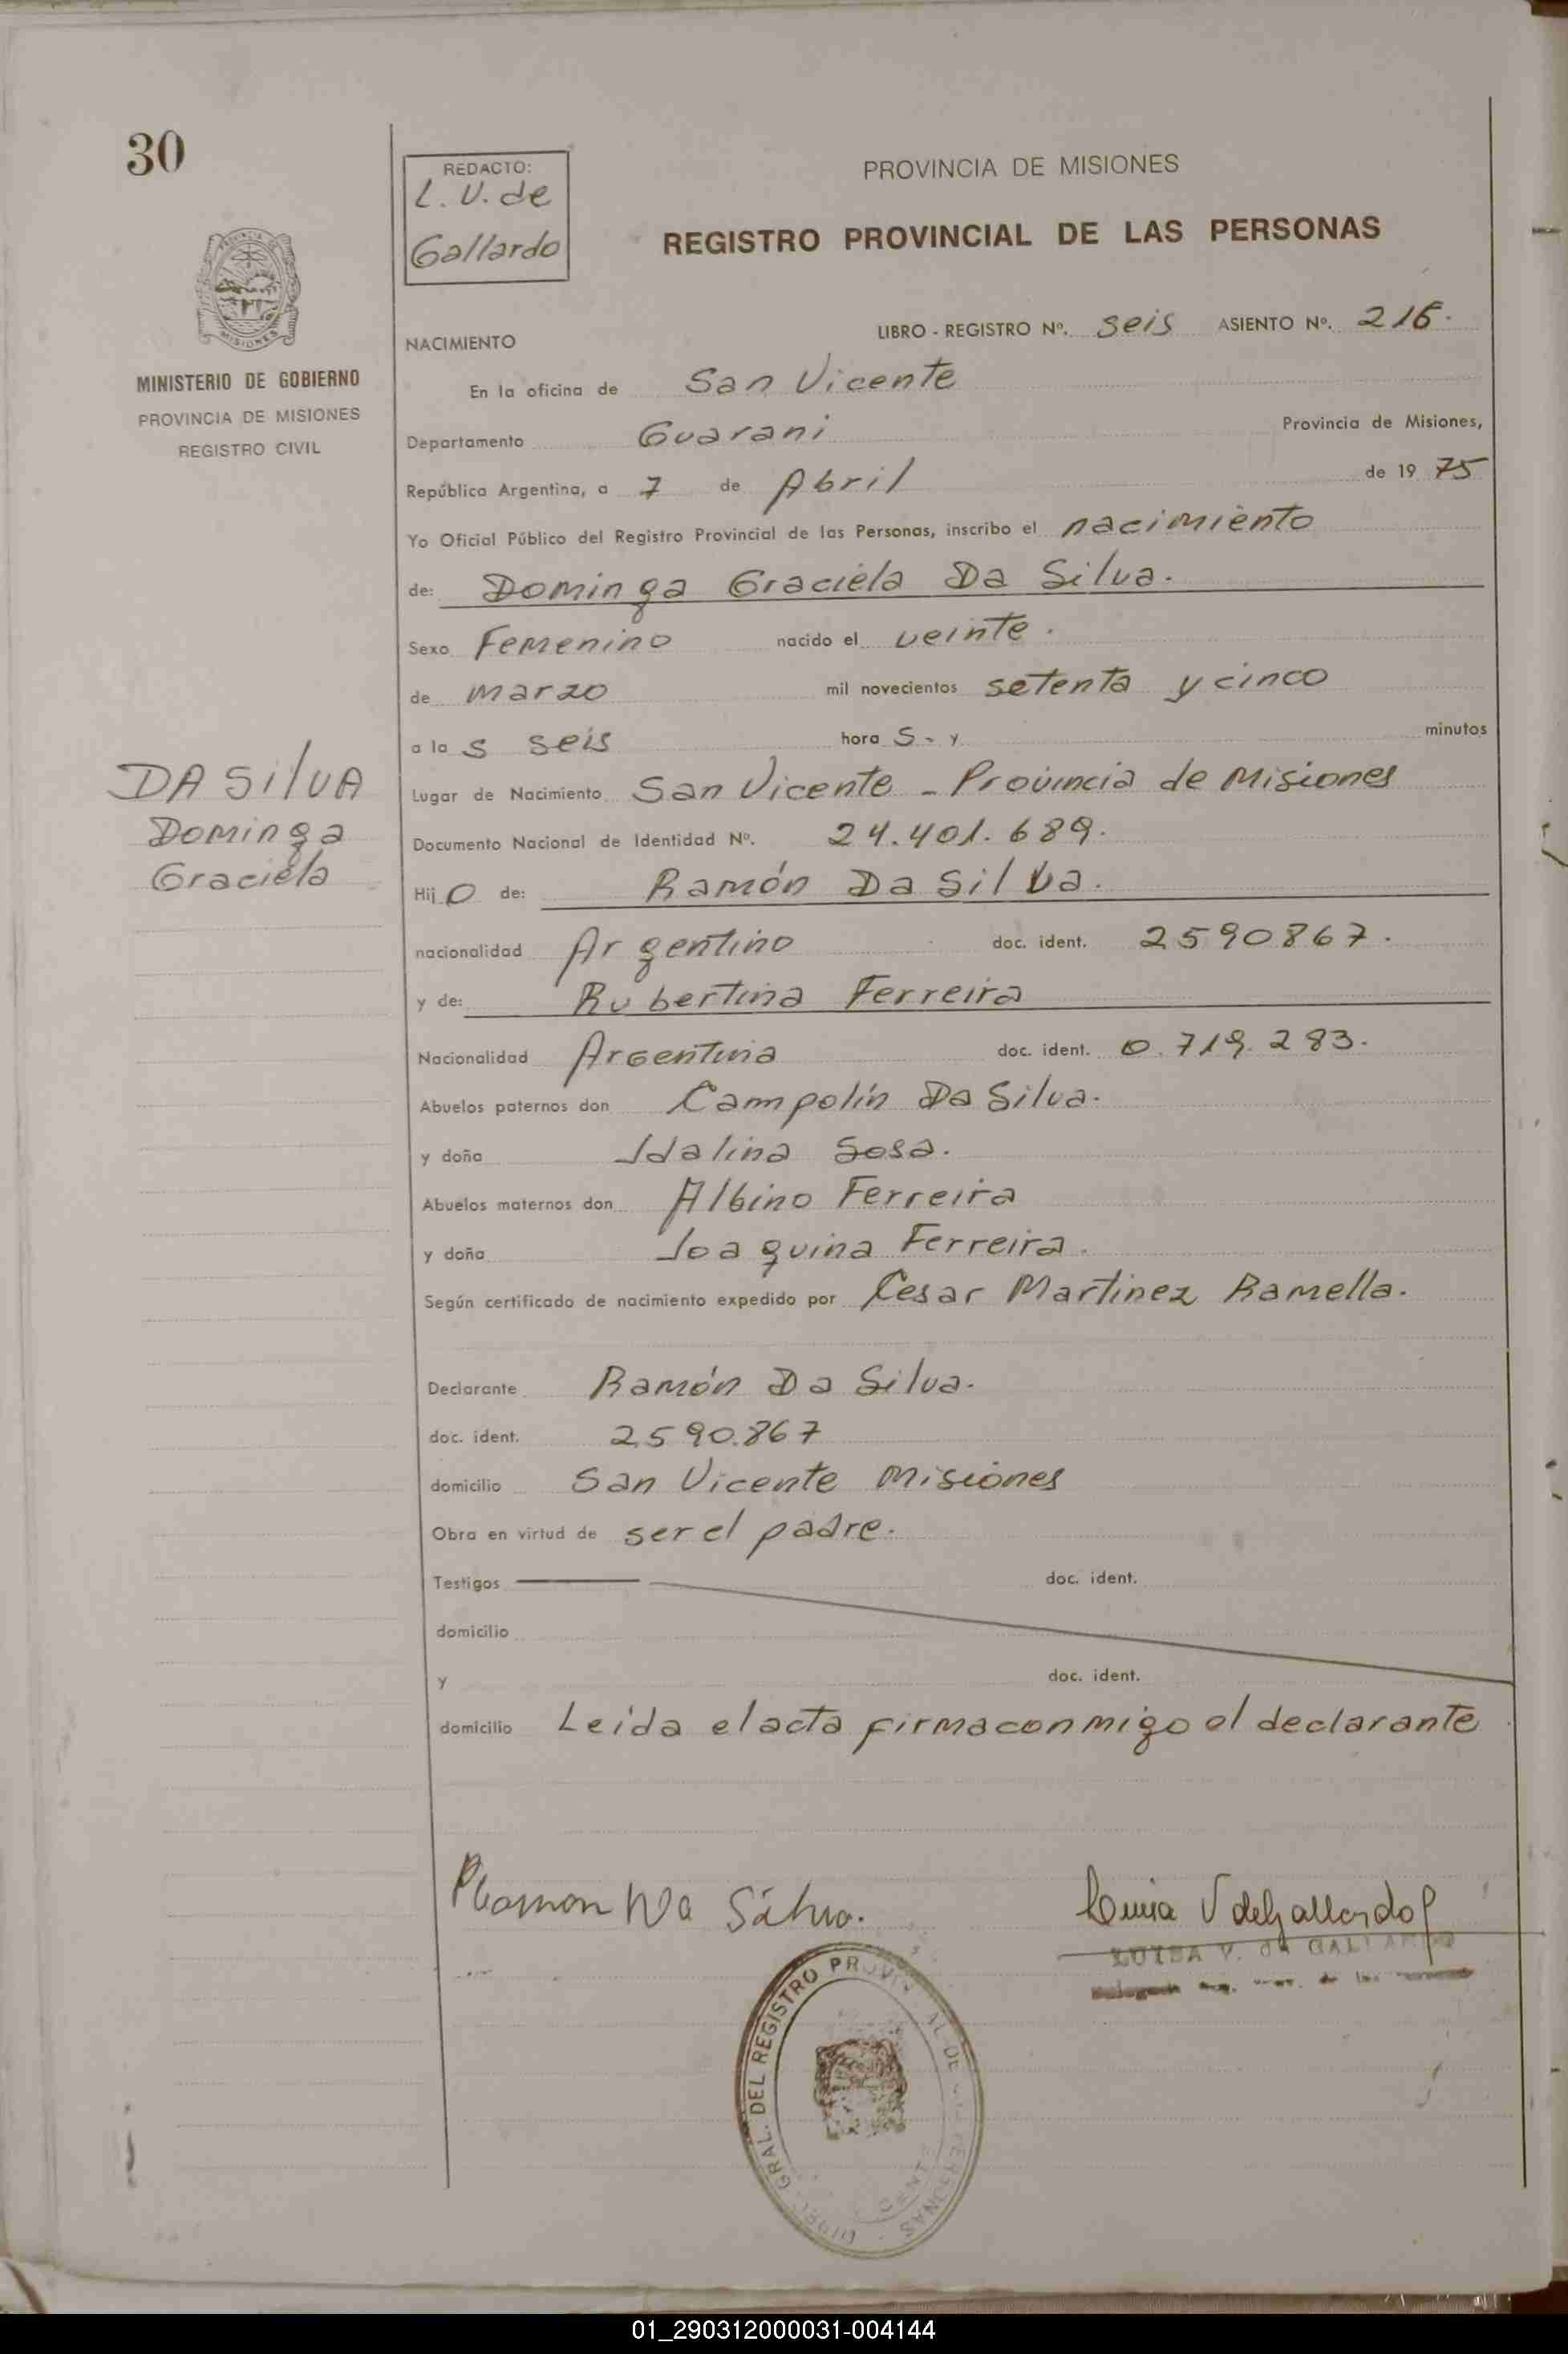 30
REDACTO:
L. V. de
Gallardo
PROVINCIA DE MISIONES
REGISTRO PROVINCIAL DE LAS PERSONAS
MISIONES
MINISTERIO DE GOBIERNO
PROVINCIA DE MISIONES
REGISTRO CIVIL
LIBRO - REGISTRO Nº. seis ASIENTO Nº. 216.
NACIMIENTO
En la oficina de San Vicente
Departamento Guarani Provincia de Misiones,
República Argentina, a 7 de Abril de 19 75
Yo Oficial Público del Registro Provincial de las Personas, inscribo el nacimiento
de: Dominga Graciela Da Silva.
Sexo Femenino nacido el veinte.
de marzo mil novecientos setenta y cinco
a la s seis hora s - y minutos
DA SilVA
Dominga
Graciela
Lugar de Nacimiento San Vicente - Provincia de Misiones
Documento Nacional de Identidad Nº. 24.401.689.
Hij o de: Ramón Da Silva.
nacionalidad Argentino doc. ident. 2590867.
y de: Rubertina Ferreira
Nacionalidad Argentina doc. ident. 0.719.283.
Abuelos paternos don Campolín Da Silva.
y doña Idalina Sosa.
Abuelos maternos don Albino Ferreira
y doña Joaquina Ferreira.
Según certificado de nacimiento expedido por Cesar Martinez Ramella.
Declarante Ramón Da Silva.
doc. ident. 2590.867
domicilio San Vicente Misiones
Obra en virtud de ser el padre.
Testigos doc. ident.
domicilio
y doc. ident.
domicilio Leida el acta firma conmigo el declarante
Ramon Da Silva.
Luisa V de Gallardo
LUISA V. de GALLARDO
DIREC. GRAL. DEL REGISTRO PROVINCIAL DE LAS PERSONAS
01_290312000031-004144